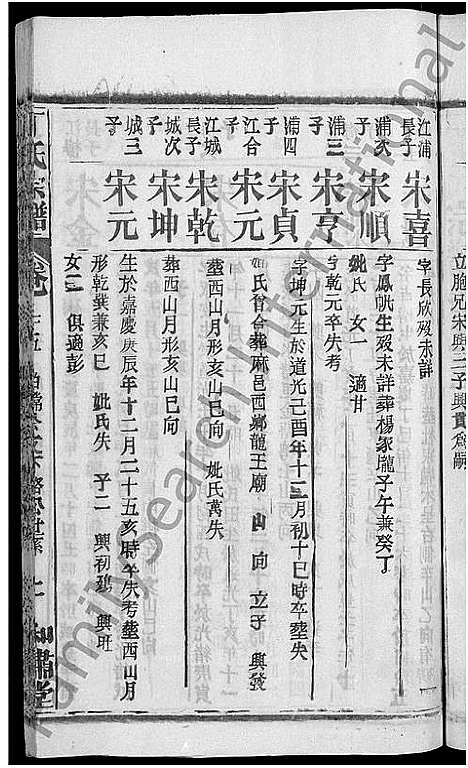 立胞兄宋與二子興貫為嗣
江浦長子
宋喜
字長欣歿未詳
浦次子
宋順
字鳳帆生歿未詳葬楊家隴子午兼癸丁
妣氏 女一 適甘
浦三子
宋亨
字乾元卒失考
浦四子
宋貞
字坤元生於道光己酉年十二月初十巳時卒塟失
江合子
宋元
妣氏曾合葬麻邑西鄉龍王廟 山 向 立子 興發
江城長子
宋乾
塟西山月形亥山巳向 妣氏萬失
城次子
宋坤
葬西山月形亥山巳向
城三子
宋元
生於嘉慶庚辰年十二月二十五亥時卒失考塟西山月
形乾巽兼亥巳 妣氏失 子二 興初 興旺
女二 俱適彭
氏宗譜
FamilySearch International